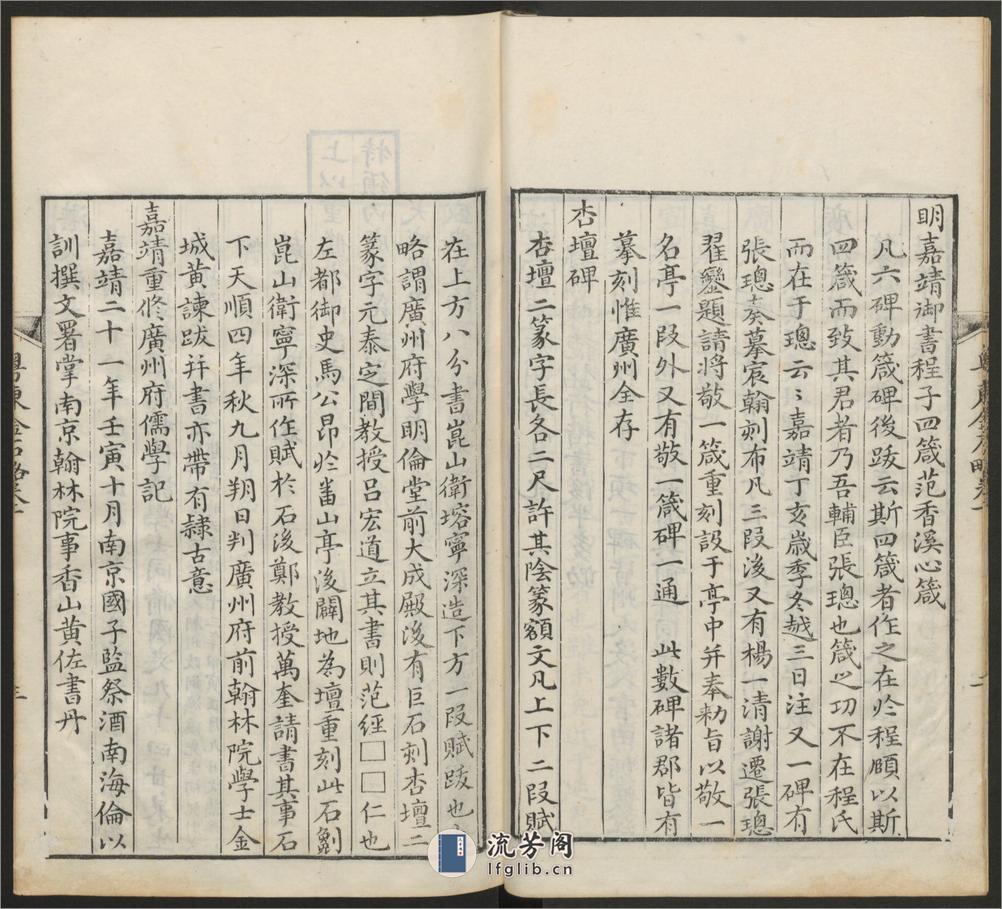 明嘉靖御書程子四箴范香溪心箴
凡六碑動箴碑後跋云斯四箴者作之在於程頤以斯
四箴而致其君者乃吾輔臣張璁也箴之功不在程氏
而在于璁云〻嘉靖丁亥歲季冬越三日注又一碑有
張璁奏摹宸翰刻布凡三段後又有楊一清謝遷張璁
翟鑾題請將敬一箴重刻設于亭中并奉勅旨以敬一
名亭一段外又有敬一箴碑一通 此數碑諸郡皆有
摹刻惟廣州全存
杏壇碑
杏壇二篆字長各二尺許其陰篆額文凡上下二段賦
在上方八分書崑山衛塎寧深造下方一段賦跋也
略謂廣州府學明倫堂前大成殿後有巨石刻杏壇二
篆字元泰定間教授呂宏道立其書則范經□□仁也
左都御史馬公昂於畨山亭後闢地為壇重刻此石劖
崑山衛寧深所作賦於石後鄭教授萬奎請書其事石
下天順四年秋九月朔日判廣州府前翰林院學士金
城黃諫跋幷書亦帶有隷古意
嘉靖重修廣州府儒學記
嘉靖二十一年壬寅十月南京國子監祭酒南海倫以
訓撰文署掌南京翰林院事香山黃佐書丹
粵東金石略卷一
三
流芳阁
lfglib.cn